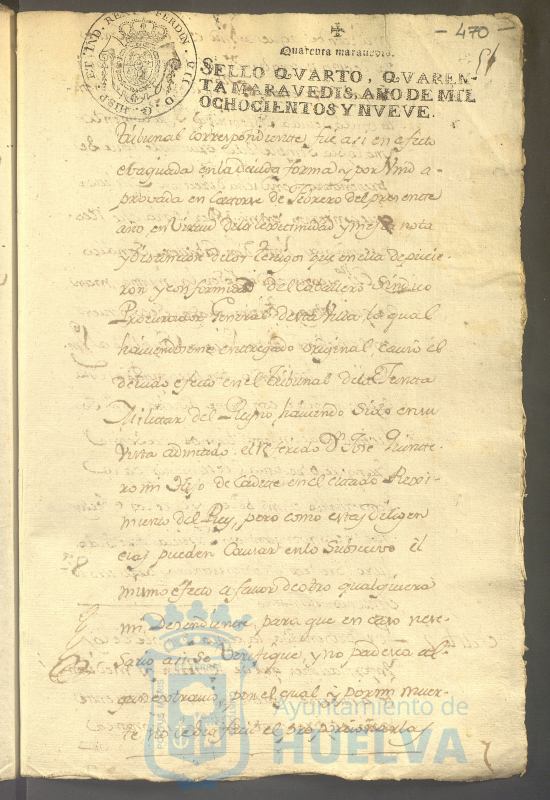 - 470 -
51
HISP. ET IND. REX FERDIN. VII. D. G.
Quarenta maravedis.
SELLO QVARTO, QVAREN-
TA MARAVEDIS, AÑO DE MIL
OCHOCIENTOS Y NVEVE.
tribunal correspondiente, fue asi en efecto
evaquada en la devida forma y por Vmd a-
probada en Catorse de Febrero del presente
año en virtud de la lexitimidad y mejor nota
y distincion de los testigos que en ella depusie-
ron y conformidad del Cavallero Sindico
Procurador General de esta Villa la qual
haviendoseme entregado original causó el
devido efecto en el Tribunal de la
Militar del Reyno haviendo sido en su
vista admitido el referido Dn José Quinte-
ro mi Hijo de Cadete en el citado Rexi-
miento del Rey, pero como estas diligen
cias pueden causar en lo subcecivo el
mismo efecto a favor de otro qualquiera
mi Desendiente, para que en caso nese-
sario asi se verifique, y no padesca al-
gun extravio, por el qual y por mi muer-
te no le sea facil el proporsionarla
Ayuntamiento de
HUELVA